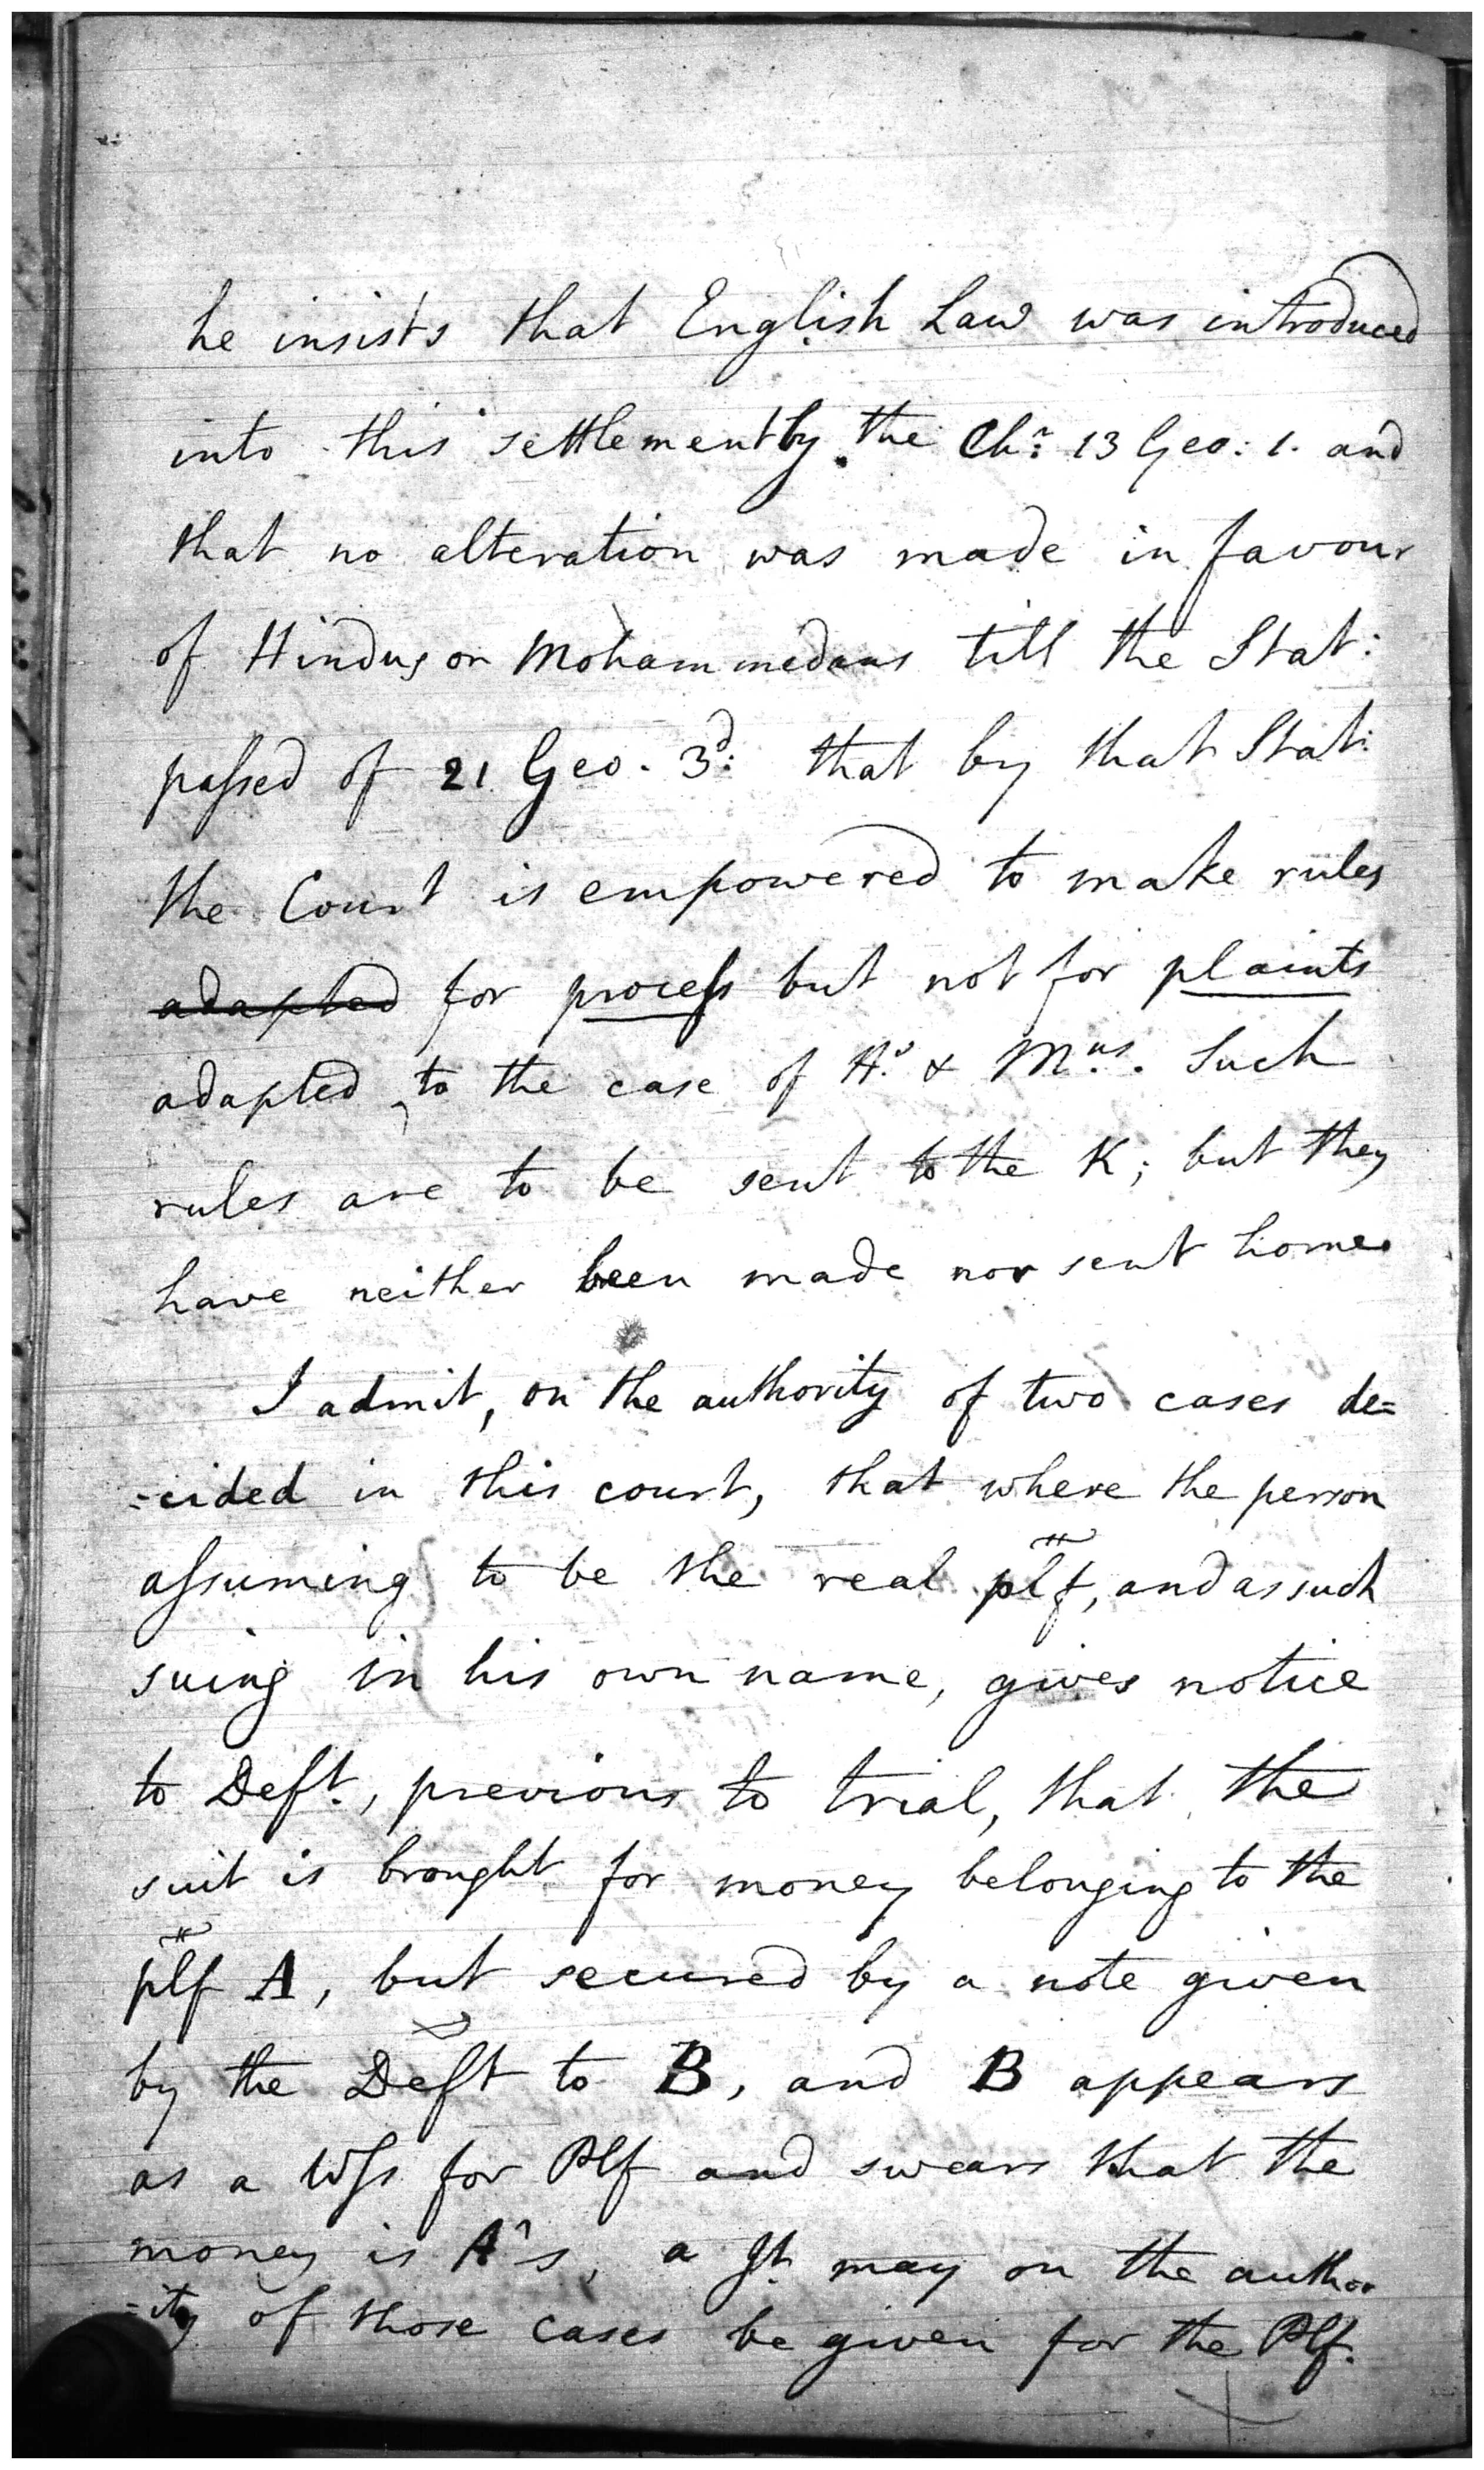 he insists that English Law was introduced
into this settlement by the Chr: 13 Geo: 1. and
that no alteration was made in favour
of Hindus or Mohammedans till the Stat:
paſsed of 21 Geo. 3d: that by that Stat:
the Court is empowered to make rules
adapted for proceſs but not for plaints
adapted to the case of Hs. & Mns. Such
rules are to be sent to the K; but they
have neither been made nor sent home
I admit, on the authority of two cases de=
=cided in this court, that where the person
aſsuming to be the real plf, and as such
suing in his own name, gives notice
to Deft., previous to trial, that the
suit is brought for money belonging to the
plf A, but secured by a note given
by the Deft to B, and B appears
as a Wſs for Plf and swears that the
money is A's, a Jt. may on the author
=ity of those cases be given for the Plf.